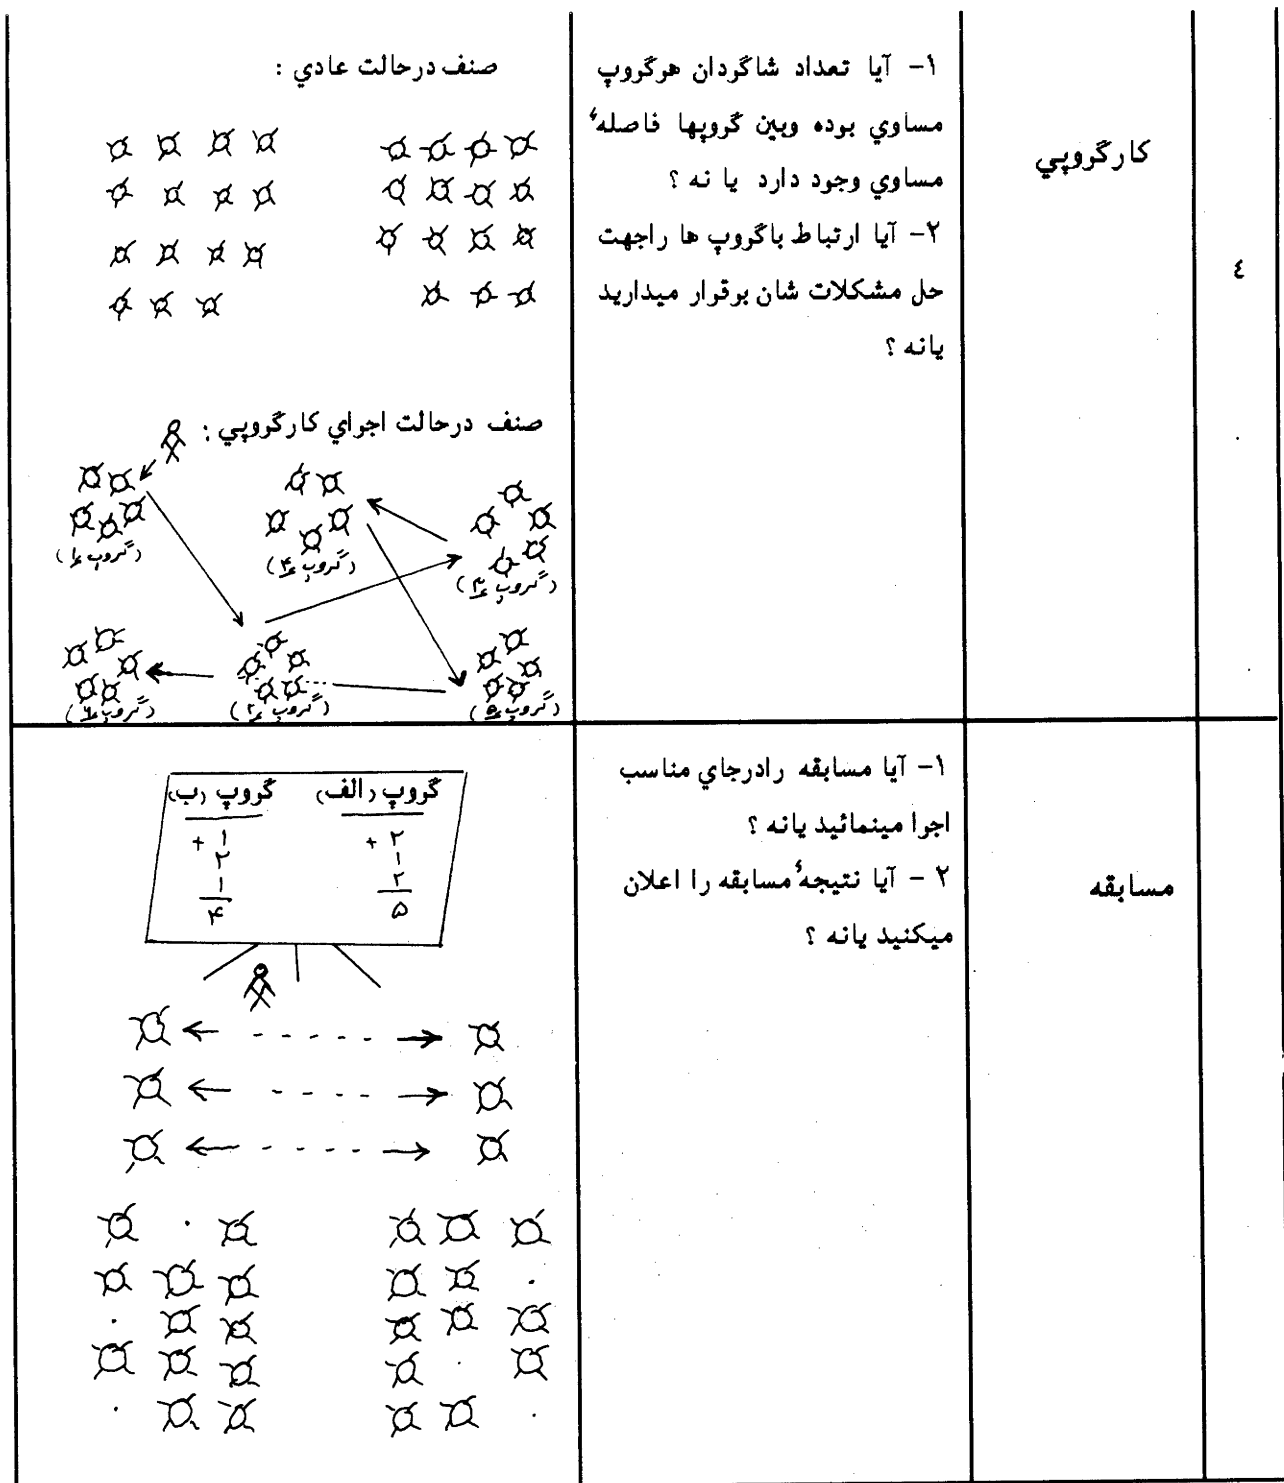 ٤
کارگروپي
۱- آیا تعداد شاگردان هرگروپ
مساوي بوده وبین گروپها فاصلهٔ
مساوي وجود دارد یا نه ؟
۲- آیا ارتباط باگروپ ها راجهت
حل مشکلات شان برقرار میدارید
یانه ؟
صنف درحالت عادي :
صنف درحالت اجراي کارگروپي :
(گروپ ۴)
(گروپ ۱)
(گروپ ۳)
(گروپ ۵)
(گروپ ۲)
(گروپ ۶)
مسابقه
۱- آیا مسابقه رادرجاي مناسب
اجرا مینمائید یانه ؟
۲ - آیا نتیجهٔ مسابقه را اعلان
میکنید یانه ؟
گروپ (الف) گروپ (ب)
+ ۲
۱
۲
۵
+ ۱
۲
۱
۴